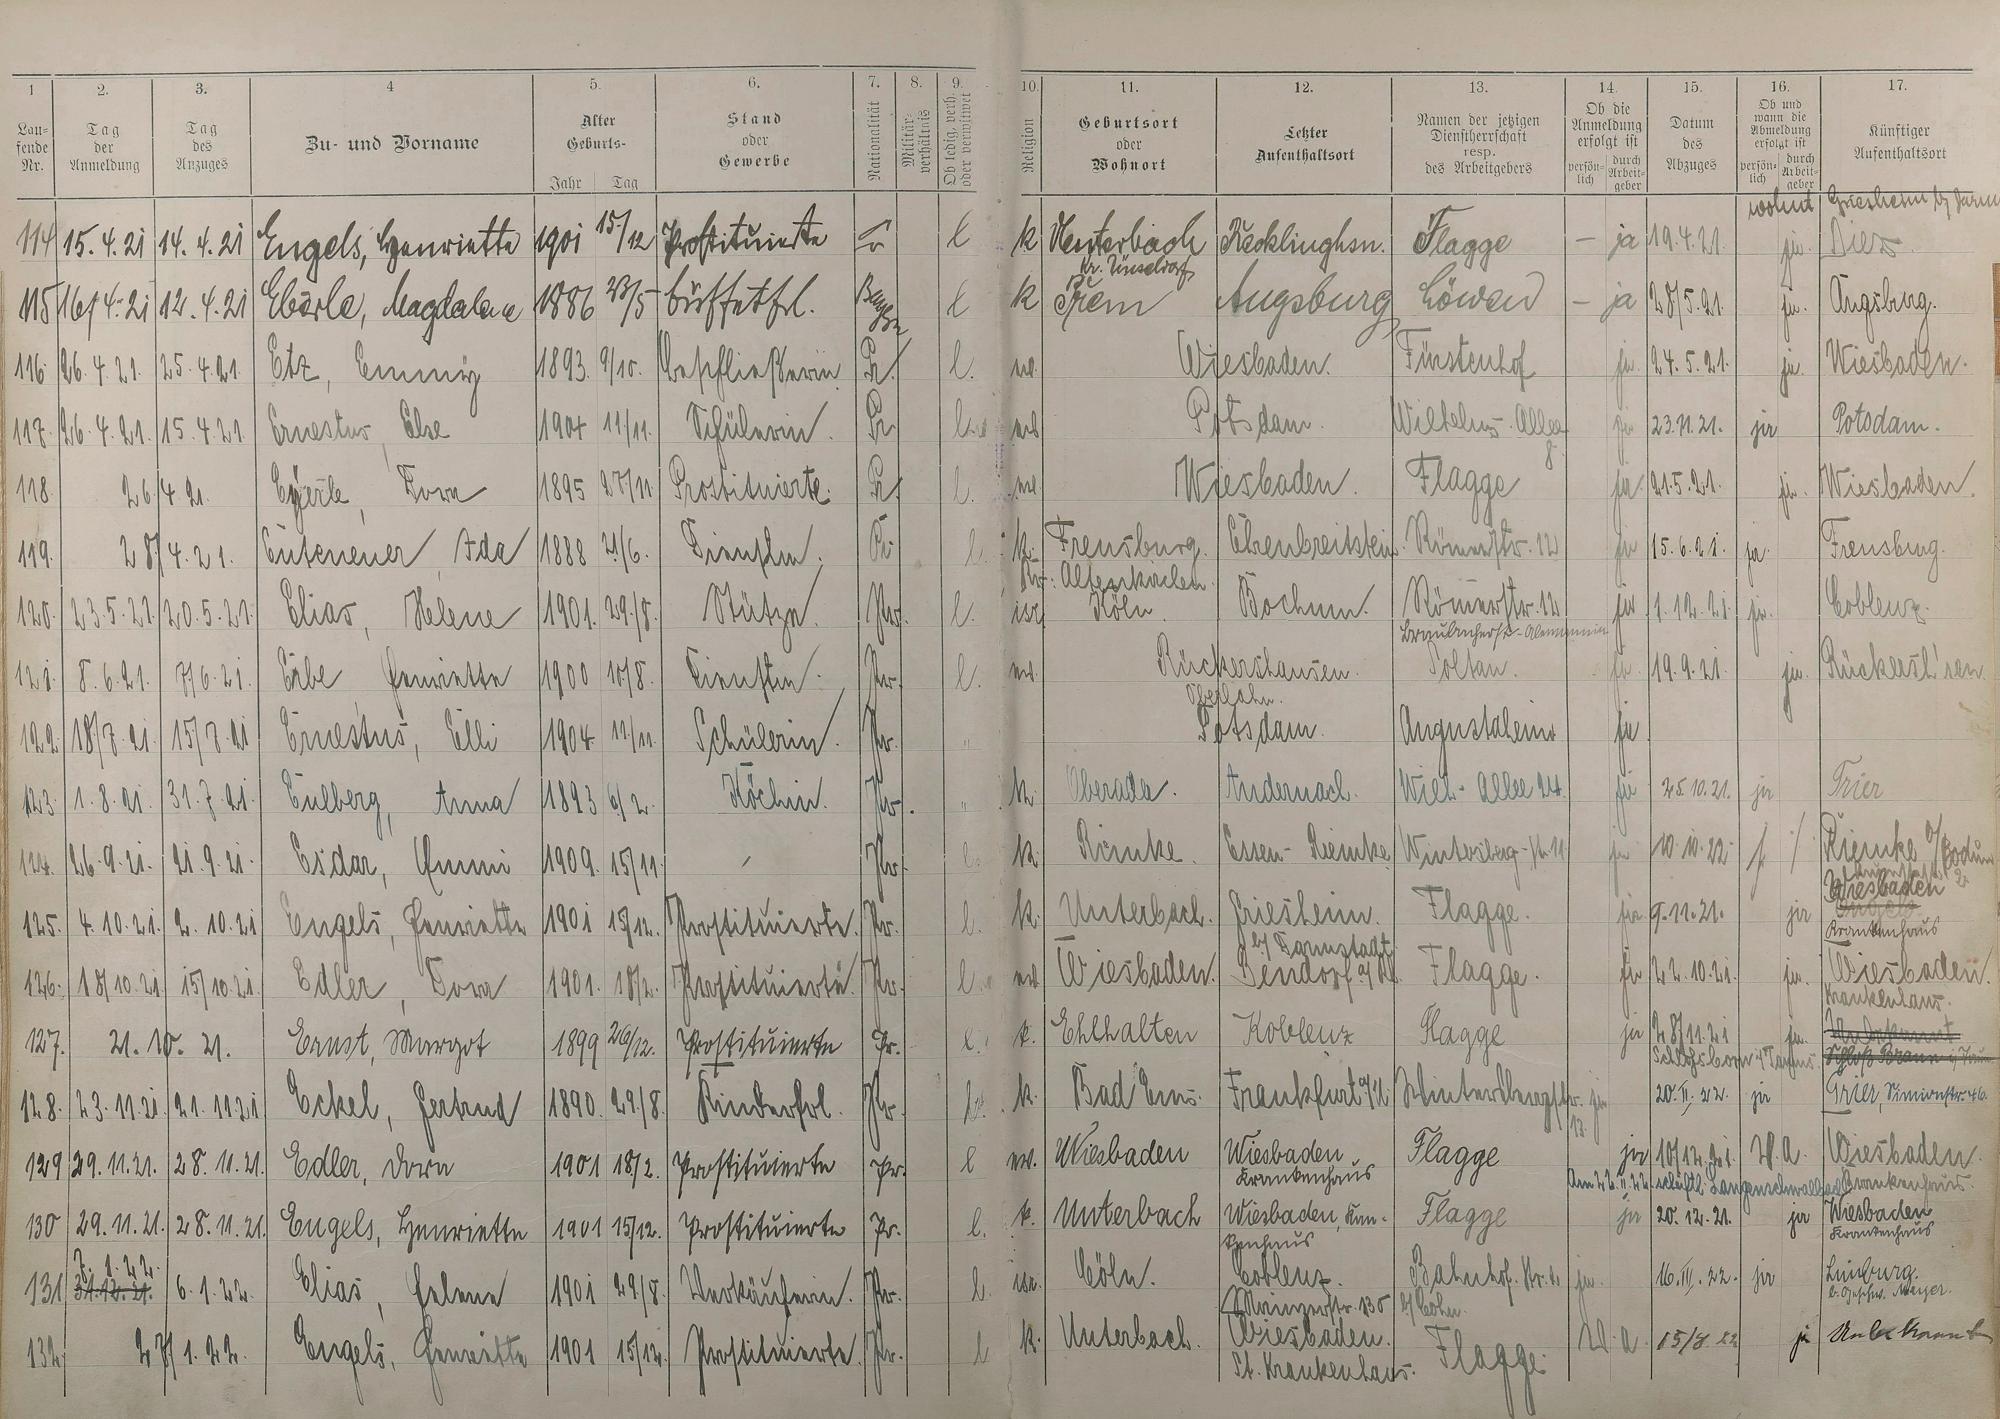 1 2. 3. 4 5. 6. 7. 8. 9. 10. 11. 12. 13. 14. 15. 16. 17.
Lau-
fende
Nr.
Tag
der
Anmeldung
Tag
des
Anzuges
Zu- und Vorname
Alter
Geburts-
Jahr Tag
Stand
oder
Gewerbe
Nationalität
Militär-
verhältnis
Ob ledig, verh.
oder verwitwet
Religion
Geburtsort
oder
Wohnort
Letzter
Aufenthaltsort
Namen der jetzigen
Dienstherrschaft
resp.
des Arbeitgebers
Ob die
Anmeldung
erfolgt ist
persön-
lich
durch
Arbeit-
geber
Datum
des
Abzuges
Ob und
wann die
Abmeldung
erfolgt ist
persön-
lich
durch
Arbeit-
geber
Künftiger
Aufenthaltsort
wohnt Griesheim b/
114 15.4.21 14.4.21 Engels, Henriette 1901 15/12 Prostituierte Pr l k Unterbach Recklinghsn. Flagge – ja 19.4.21. ja. Diez
Kr. Düsseldorf
115 16/4.21 12.4.21 Eberle, Magdalene 1886 23/5 Büffetfrl. l k Prem Augsburg Löwen – ja 28/5.21. ja. Augsburg.
116 26.4.21. 25.4.21. Etz, Emmy 1893. 9/10. Beschließerin Pr. l. ev. Wiesbaden. Fürstenhof ja. 24.5.21. ja. Wiesbaden.
117. 26.4.21. 15.4.21. Ernestus, Else 1904 11/11. Schülerin. Pr l. ev. Potsdam. Wilhelms-Allee ja 23.11.21. ja Potsdam.
8.
118. 26/4 21. Dora 1895 27/11 Prostituierte. Pr. l. ev. Wiesbaden. Flagge ja 21.5.21. ja. Wiesbaden.
119. 28/4.21. Euteneuer, Ida 1888 21/6. Dienstm. Pr l. k. Freusburg. Ehrenbreitstein. Römerstr. 12 ja 15.6.21. ja. Freusburg.
Kr. Altenkirchen.
120. 23.5.21. 20.5.21. Elias, Helene 1901. 29/8. Stütze. Pr. l. isr. Köln. Bochum. Römerstr. 12 ja 1.12.21 ja. Coblenz.
121. 8.6.21. 7/6.21. Erbe Henriette 1900 10/8. Dienstm. Pr. l. ev. Rückershausen. Soltau. ja. 19.9.21. ja. Rückersh'sen.
Oberlahn.
122. 18/7.21. 15/7.21 Ernestus, Elli 1904 11/11. Schülerin. Pr. " Potsdam. Augustaheim ja
123. 1.8.21. 31.7.21. Eulberg, Anna 1893 6/2. Köchin. Pr. " k. Andernach. Wilh.-Allee 24. ja 25.10.21. ja Trier
124. 26.9.21. 21.9.21. Esdar, Emmi 1909. 15/11. – Pr. l. k. Riemke. Essen-Riemke Wintersberg-str. 11 ja 10.10.22. / / Riemke b/Bochum
125. 4.10.21. 2.10.21 Engels, Henriette 1901 15/12. Prostituierte. Pr. l. k. Unterbach. Griesheim. Flagge. ja 9.11.21. ja Wiesbaden
b/ Darmstadt Krankenhaus
126. 18/10.21 15/10.21. Edler, Dora 1901. 18/2. Prostituierte. Pr. l. ev. Wiesbaden. Bendorf a/Rh. Flagge. ja 22.10.21. ja. Wiesbaden.
Krankenhaus.
127. 21.10.21. Ernst, Margot 1899 26/12. Prostituierte Pr. l. k. Ehlhalten Koblenz Flagge ja 28/11.21 ja. Unbekannt
Schloßborn i/Taunus.
128. 23.11.21. 21.11.21 Eckel, Gertrud 1890. 29/8. Kinderfrl. Pr. k. Bad Ems. Frankfurt a/M Wintersbergstr. ja 20.II.22. ja Trier, Simionstr. 46.
13.
129 29.11.21. 28.11.21. Edler, Dora 1901 18/2. Prostituierte Pr. l ev. Wiesbaden Wiesbaden Flagge ja 10/12.21. W.a. Wiesbaden.
Krankenhaus Krankenhaus.
130 29.11.21. 28.11.21. Engels, Henriette 1901 15/12. Prostituierte Pr. l. k. Unterbach Wiesbaden, Kran- Flagge ja 20.12.21. ja Wiesbaden
kenhaus Krankenhaus
7.1.22.
131 31.12.21. 6.1.22. Elias, Helene 1901 29/8. Verkäuferin. Pr. l. isr. Cöln. Coblenz. Bahnhof. Str. ja. 16.III.22. ja Limburg.
Mainzerstr. 130 b/ Cohn. b. Geschw. Mayer.
132. 27/1.22. Engels, Henriette 1901 15/12. Prostituierte. Pr. l k. Unterbach. Wiesbaden. Flagge. W.a. 15/8 22 ja Unbekannt
St. Krankenhaus.